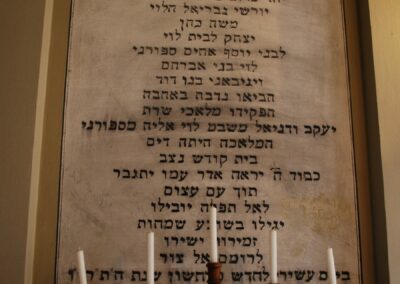 יורשי גבריאל הלוי
משה כהן
יצחק לבית לוי
לבני יוסף אחים ספורני
לוי בני אברהם
ויניבאני בנו דוד
הביאו נדבה באהבה
הפקידו מלאכי שרת
יעקב ודניאל משבט לוי אליה מספורני
המלאכה היתה דים
בית קודש נצב
כבוד ה׳ יראה אדר עמו יתגבר
תוך עם עצום
לאל תפלה יובילו
יגילו בשובע שמחות
זמירות ישירו
לרומם אל צור
ביום עשירי לחדש חשון שנת